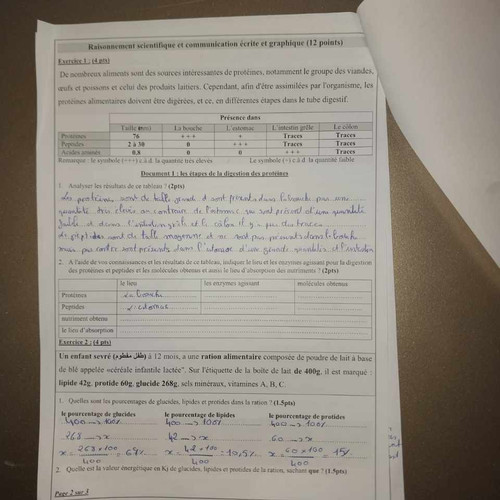 Raisonnement scientifique et communication écrite et graphique (12 points)
Exercice 1 : (4 pts)
De nombreux aliments sont des sources intéressantes de protéines, notamment le groupe des viandes,
œufs et poissons et celui des produits laitiers. Cependant, afin d'être assimilées par l'organisme, les
protéines alimentaires doivent être digérées, et ce, en différentes étapes dans le tube digestif.
Présence dans
Taille (nm) La bouche L'estomac L'intestin grêle Le côlon
Protéines 76 +++ + Traces Traces
Peptides 2 à 30 0 +++ Traces Traces
Acides aminés 0,8 0 0 +++ Traces
Remarque : le symbole (+++) c.à.d. la quantité très élevés Le symbole (+) c.à.d. la quantité faible
Document 1 : les étapes de la digestion des protéines
1. Analyser les résultats de ce tableau ? (2pts)
Les protéines sont de taille grand et sont présents dans la bouche par une
quantité très élevés au contraire de l'estomac
faible et dans l'intestin grêle et le côlon il y a que des traces
peptides sont de taille moyenne et ne sont pas présents dans la bouche
sont présents dans l'estomac d'une grande quantité
2. A l'aide de vos connaissances et les résultats de ce tableau, indiquer le lieu et les enzymes agissant pour la digestion
des protéines et peptides et les molécules obtenus et aussi le lieu d'absorption des nutriments ? (2pts)
le lieu les enzymes agissant molécules obtenus
Protéines La bouche
Peptides L'estomac
nutriment obtenu
le lieu d'absorption
Exercice 2 : (4 pts)
Un enfant sevré (طفل مفطوم) à 12 mois, a une ration alimentaire composée de poudre de lait à base
de blé appelée «céréale infantile lactée". Sur l'étiquette de la boite de lait de 400g, il est marqué :
lipide 42g, protide 60g, glucide 268g, sels minéraux, vitamines A, B, C.
1. Quelles sont les pourcentages de glucides, lipides et protides dans la ration ? (1.5pts)
le pourcentage de glucides le pourcentage de lipides le pourcentage de protides
400 → 100% 400 → 100% 400 → 100%
268 → x 42 → x 60 → x
x = 268 × 100 / 400 = 67% x = 42 × 100 / 400 = 10,5% x = 60 × 100 / 400 = 15%
2. Quelle est la valeur énergétique en Kj de glucides, lipides et protides de la ration, sachant que ? (1.5pts)
Page 2 sur 3